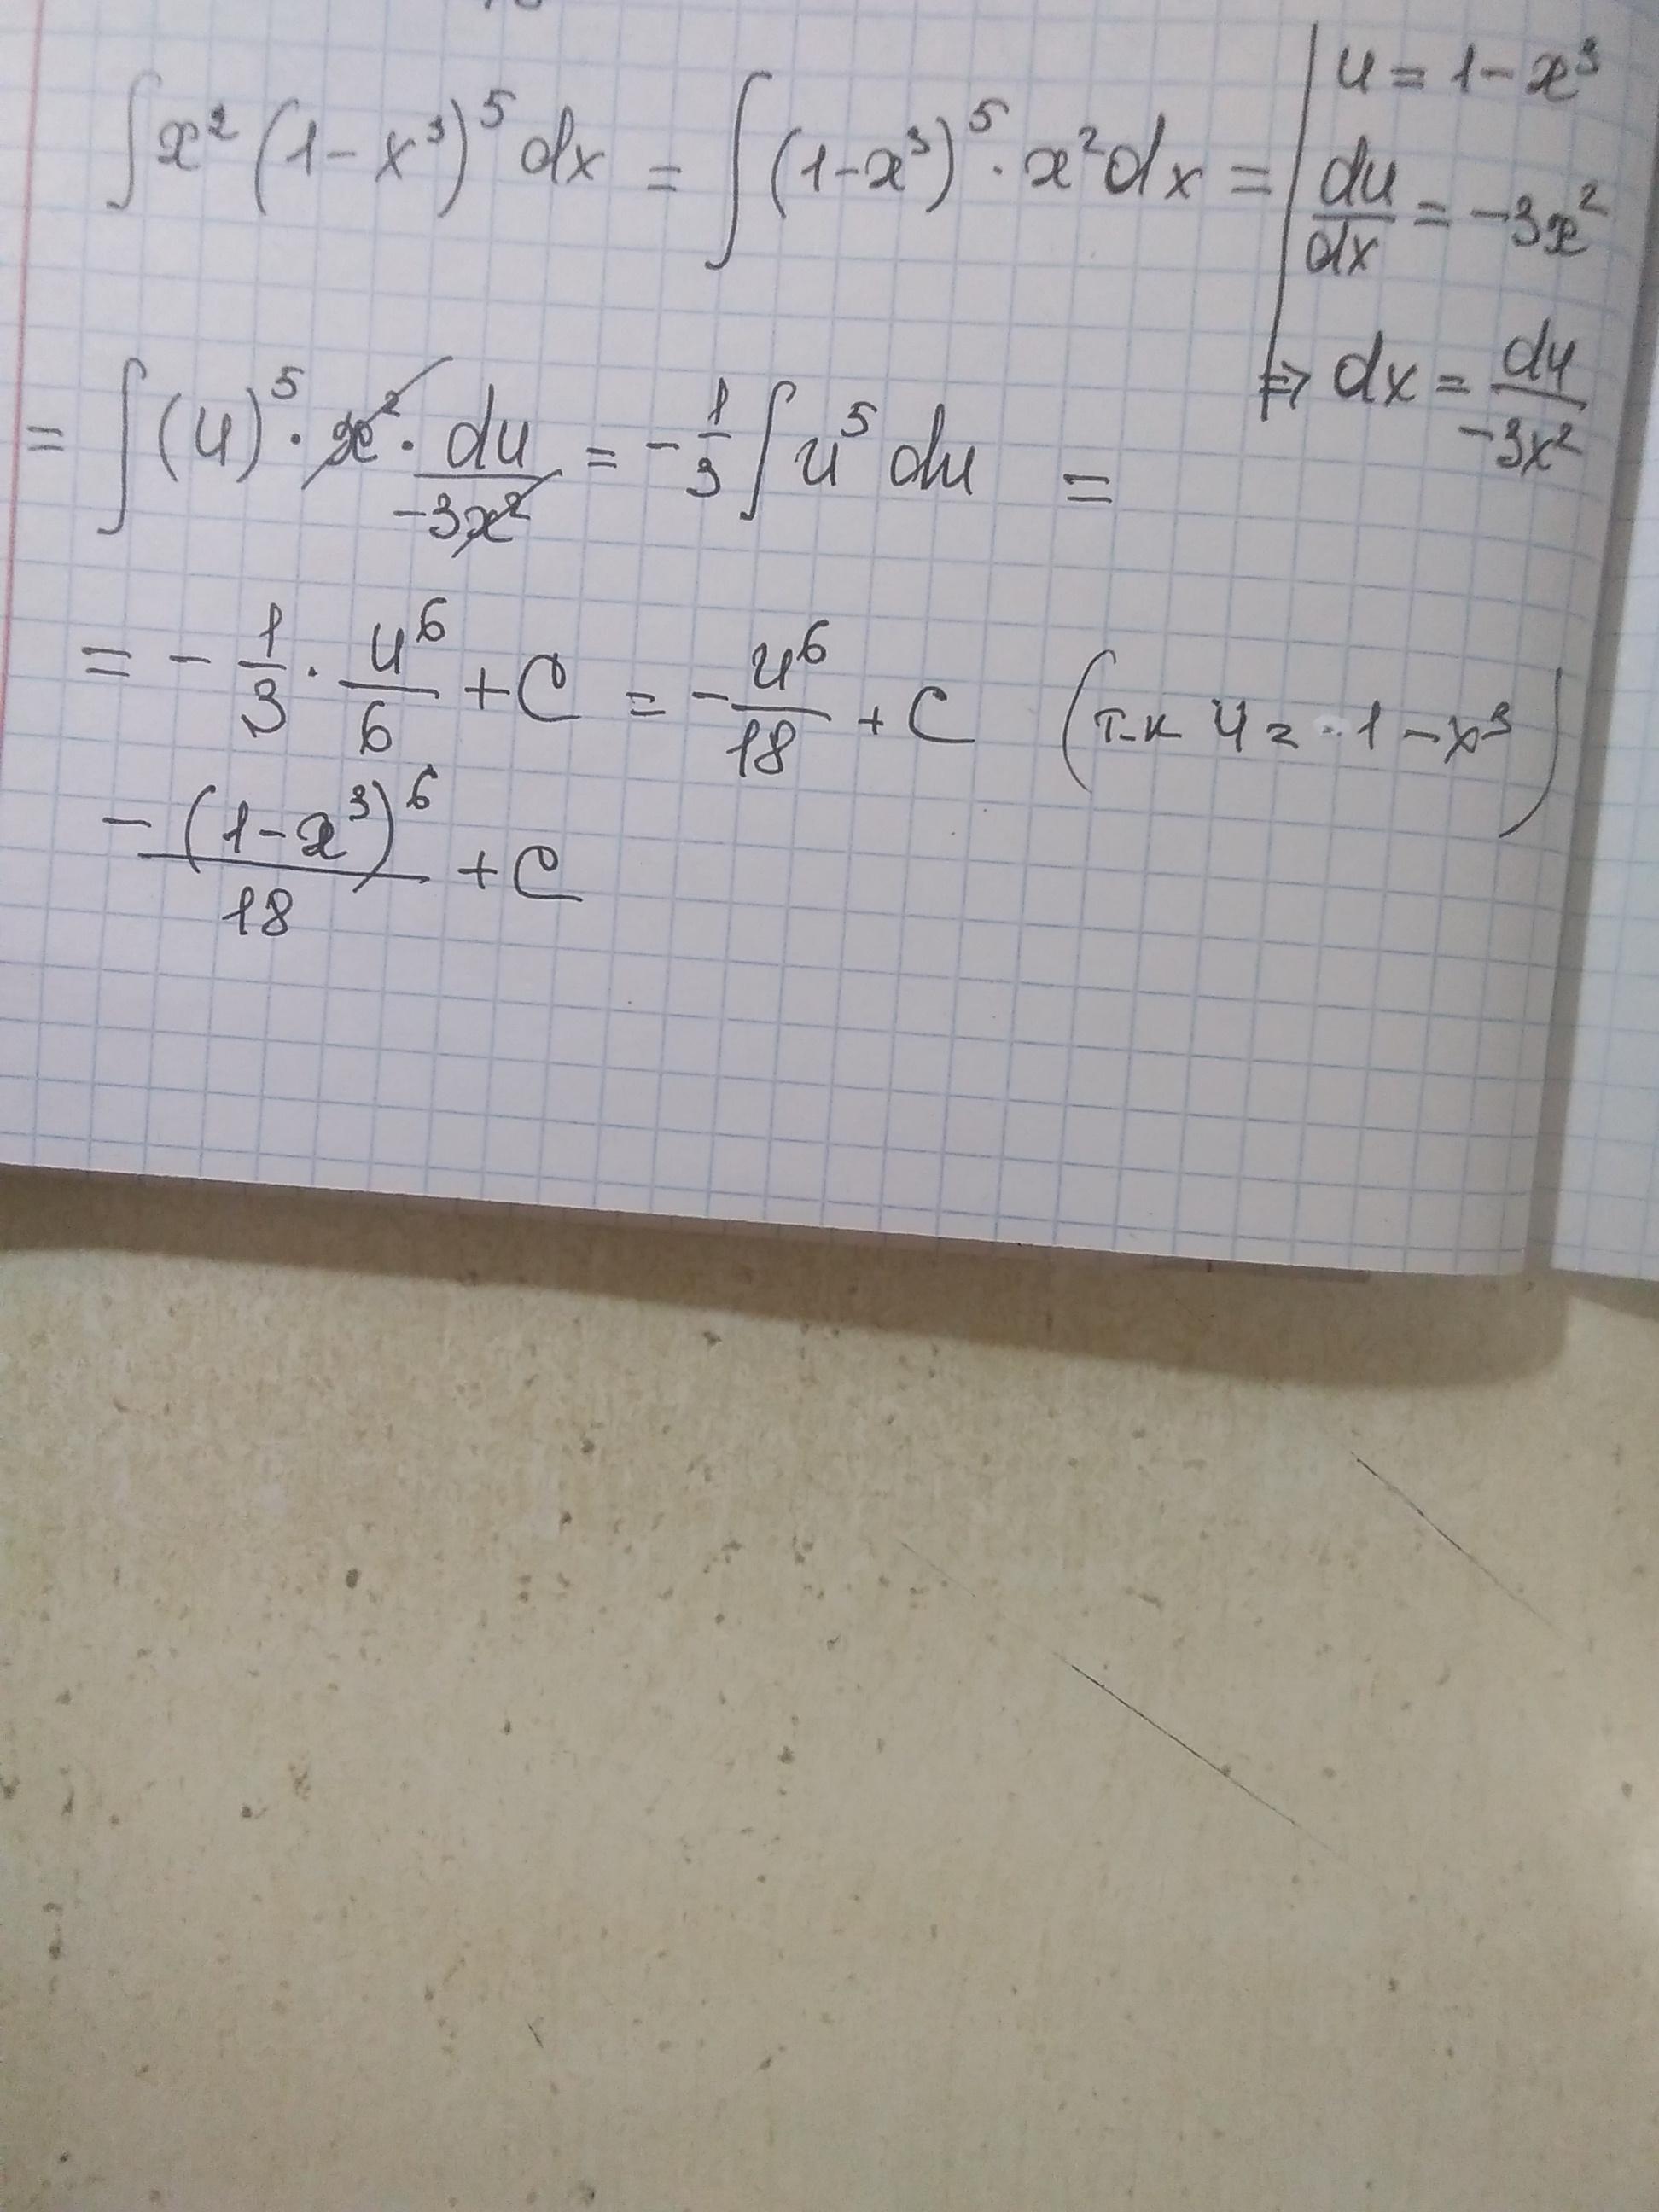 ∫ x² (1 - x³)⁵ dx = ∫ (1 - x³)⁵ · x² dx = | u = 1 - x³
du/dx = -3x²
⇒ dx = du/-3x²
= ∫ (u)⁵ · x² · du/-3x² = -1/3 ∫ u⁵ du =
= -1/3 · u⁶/6 + C = -u⁶/18 + C (т-к u = 1 - x³)
-(1 - x³)⁶/18 + C